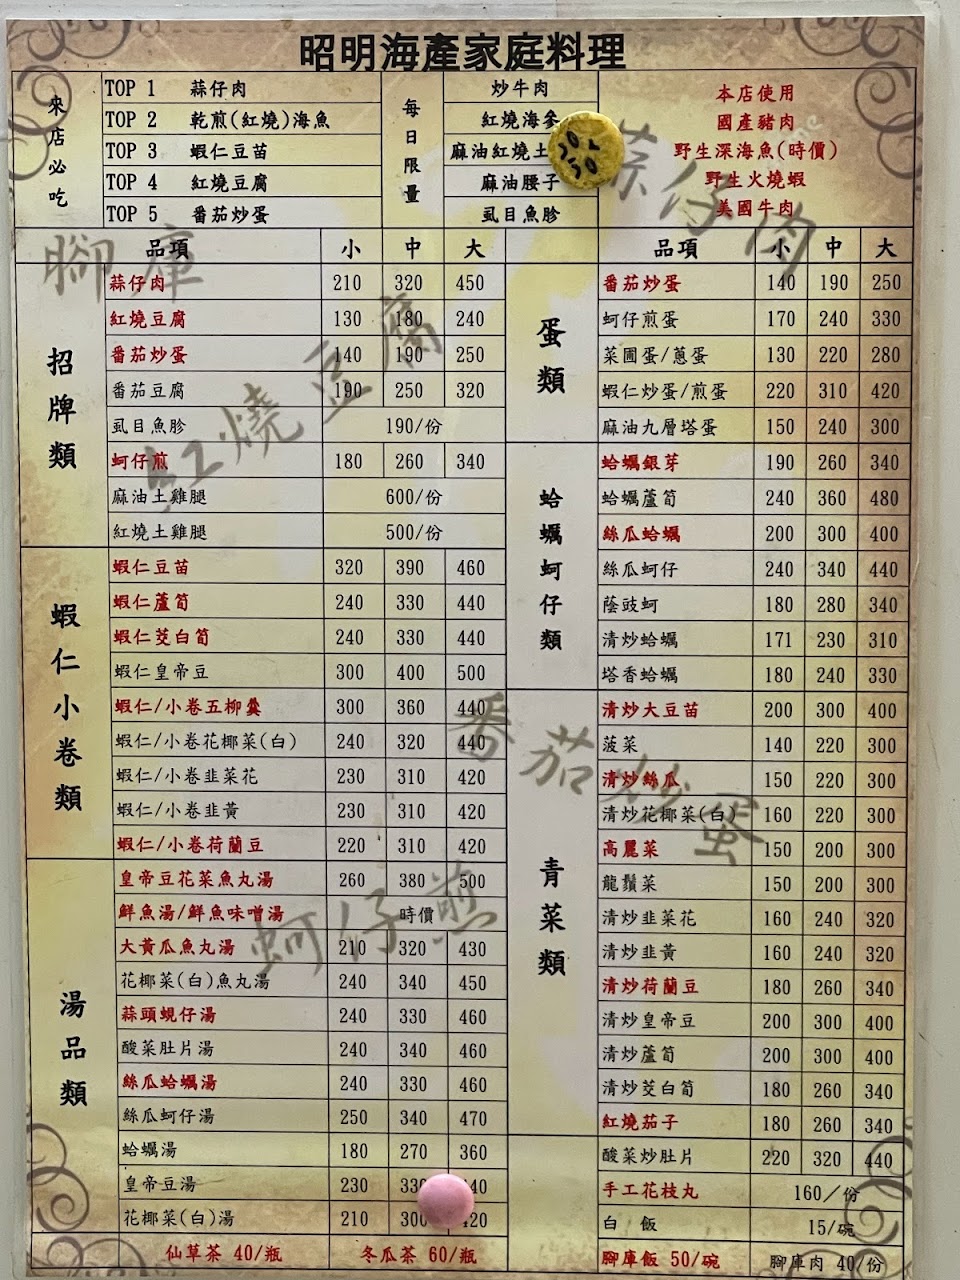 昭明海產家庭料理
來店必吃
TOP 1 蒜仔肉
TOP 2 乾煎(紅燒)海魚
TOP 3 蝦仁豆苗
TOP 4 紅燒豆腐
TOP 5 番茄炒蛋
每日限量
炒牛肉
紅燒海參
麻油紅燒土
麻油腰子
虱目魚胗
本店使用
國產豬肉
野生深海魚(時價)
野生火燒蝦
美國牛肉
品項 小 中 大
招牌類
蒜仔肉 210 320 450
紅燒豆腐 130 180 240
番茄炒蛋 140 190 250
番茄豆腐 190 250 320
虱目魚胗 190/份
蚵仔煎 180 260 340
麻油土雞腿 600/份
紅燒土雞腿 500/份
蝦仁小卷類
蝦仁豆苗 320 390 460
蝦仁蘆筍 240 330 440
蝦仁茭白筍 240 330 440
蝦仁皇帝豆 300 400 500
蝦仁/小卷五柳羹 300 360 440
蝦仁/小卷花椰菜(白) 240 320 440
蝦仁/小卷韭菜花 230 310 420
蝦仁/小卷韭黃 230 310 420
蝦仁/小卷荷蘭豆 220 310 420
湯品類
皇帝豆花菜魚丸湯 260 380 500
鮮魚湯/鮮魚味噌湯 時價
大黃瓜魚丸湯 210 320 430
花椰菜(白)魚丸湯 240 340 450
蒜頭蜆仔湯 240 330 460
酸菜肚片湯 240 340 460
絲瓜蛤蠣湯 240 330 460
絲瓜蚵仔湯 250 340 470
蛤蠣湯 180 270 360
皇帝豆湯 230 330 40
花椰菜(白)湯 210 300 420
仙草茶 40/瓶 冬瓜茶 60/瓶
品項 小 中 大
蛋類
番茄炒蛋 140 190 250
蚵仔煎蛋 170 240 330
菜圃蛋/蔥蛋 130 220 280
蝦仁炒蛋/煎蛋 220 310 420
麻油九層塔蛋 150 240 300
蛤蠣蚵仔類
蛤蠣銀芽 190 260 340
蛤蠣蘆筍 240 360 480
絲瓜蛤蠣 200 300 400
絲瓜蚵仔 240 340 440
蔭豉蚵 180 280 340
清炒蛤蠣 171 230 310
塔香蛤蠣 180 240 330
青菜類
清炒大豆苗 200 300 400
菠菜 140 220 300
清炒絲瓜 150 220 300
清炒花椰菜(白) 160 220 300
高麗菜 150 200 300
龍鬚菜 150 200 300
清炒韭菜花 160 240 320
清炒韭黃 160 240 320
清炒荷蘭豆 180 260 340
清炒皇帝豆 200 300 400
清炒蘆筍 200 300 400
清炒茭白筍 180 260 340
紅燒茄子 180 260 340
酸菜炒肚片 220 320 440
手工花枝丸 160/份
白飯 15/碗
腳庫飯 50/碗 腳庫肉 40/份
腳庫
紅燒豆腐
蒜仔肉
番茄炒蛋
蚵仔煎